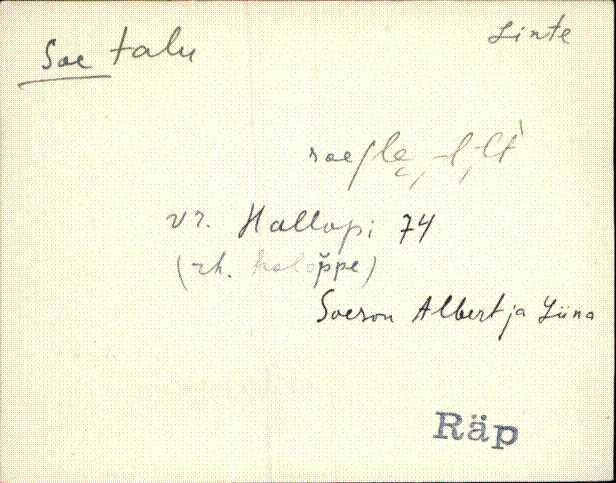 Soe talu
Linte
soe/le, -l, -lt
vr. Hallopi 74
(rh. haloppe)
Soeson Albert ja Liina
Räp